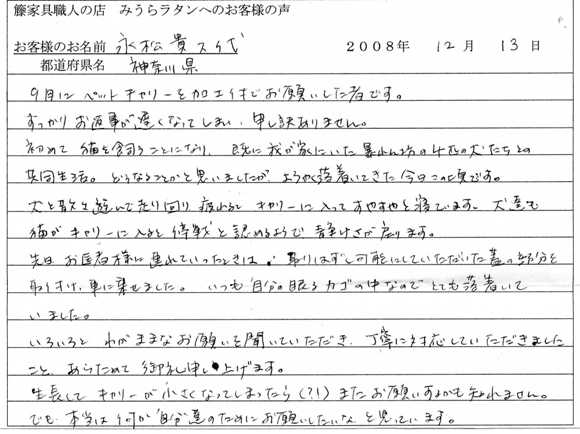 籐家具職人の店 みうらラタンへのお客様の声
お客様のお名前 永松貴久代 2008年 12月 13日
都道府県名 神奈川県
9月にペットキャリーを加工付でお願いした者です。
すっかりお返事が遅くなってしまい、申し訳ありません。
初めて猫を飼うことになり、既に我が家にいた暴れん坊の4匹の犬たちとの
共同生活。どうなることかと思いましたが、ようやく落着いてきた今日この頃です。
犬と散々遊んで走り回り疲れると キャリーに入ってすやすやと寝ています。犬達も
猫がキャリーに入ると停戦と認めるようで 静けさが戻ります。
先日 お医者様に連れていったときは、取りはずし可能にしていただいた蓋の部分を
取り付け、車に乗せました。いつも自分の眠るカゴの中なのでとても落着いて
いました。
いろいろと わがままなお願いを聞いていただき、丁寧に対応していただきました
こと、あらためて御礼申し上げます。
生長して キャリーが小さくなってしまったら(?!)またお願いするかも知れません。
でも、本当は何か自分達のためにお願いしたいな と思っています。